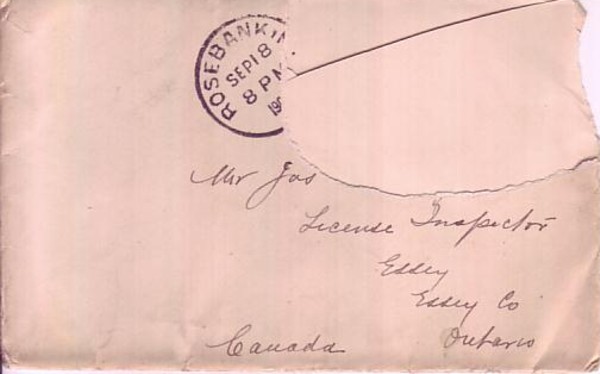 ROSEBANK
SEP 18
8 PM
190
Mr Jas
License Inspector
Essex
Essex Co
Canada Ontario